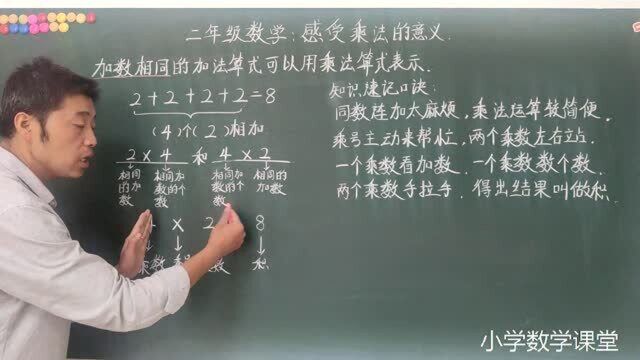 二年级数学:感受乘法的意义.
加数相同的加法算式可以用乘法算式表示.
2+2+2+2=8
(4)个(2)相加
2×4 和 4×2
相同的加数 相同加数的个数 相同加数的个数 相同的加数
× 2 8
数 数 积
知识速记口诀:
同数连加太麻烦,乘法运算较简便.
乘号主动来帮忙,两个乘数左右站.
一个乘数看加数.一个乘数数个数.
两个乘数手拉手.得出结果叫做积.
小学数学课堂